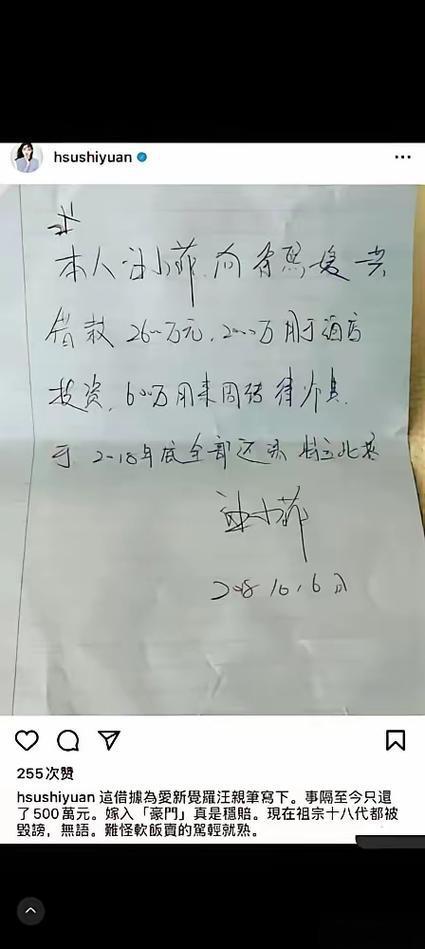 hsushiyuan
本人汪小菲向徐熙媛共
借款2600万元，2000万用于酒店
投资，600万用来周转律师
于2018年底全部还清 特立此
汪小菲
2018 10.6
255次赞
hsushiyuan 這借據為愛新覺羅汪親筆寫下。事隔至今只還
了500萬元。嫁入「豪門」真是穩賠。現在祖宗十八代都被
毀謗，無語。難怪軟飯賣的駕輕就熟。